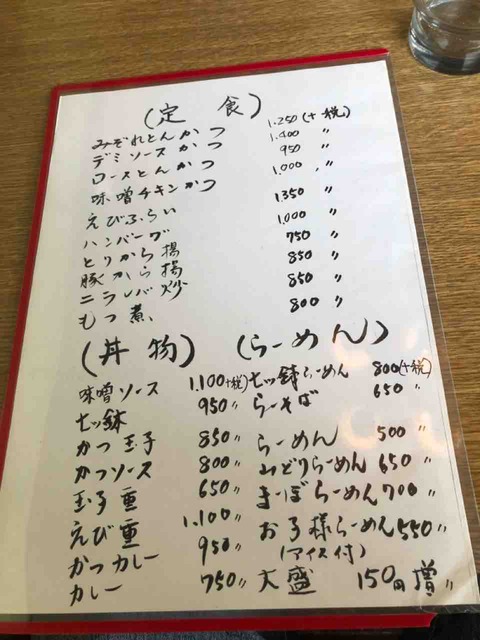 (定 食)
みぞれとんかつ 1.250(+税)
デミソースかつ 1.400 〃
ロースとんかつ 950 〃
味噌チキンかつ 1.000 〃
えびふらい 1.350 〃
ハンバーグ 1.000 〃
とりから揚 750 〃
豚から揚 850 〃
ニラレバ炒 850 〃
もつ煮 800 〃
(丼 物)
味噌ソース 1.100+税)
七ッ鉢 950〃
かつ玉子 850〃
かつソース 800〃
玉子重 650〃
えび重 1.100〃
かつカレー 950〃
カレー 750〃
(らーめん)
七ッ鉢らーめん 800(+税)
らーそば 650〃
らーめん 500〃
みどりらーめん 650〃
まーぼらーめん 700〃
お子様らーめん 550〃
(アイス付)
大盛 150円増〃